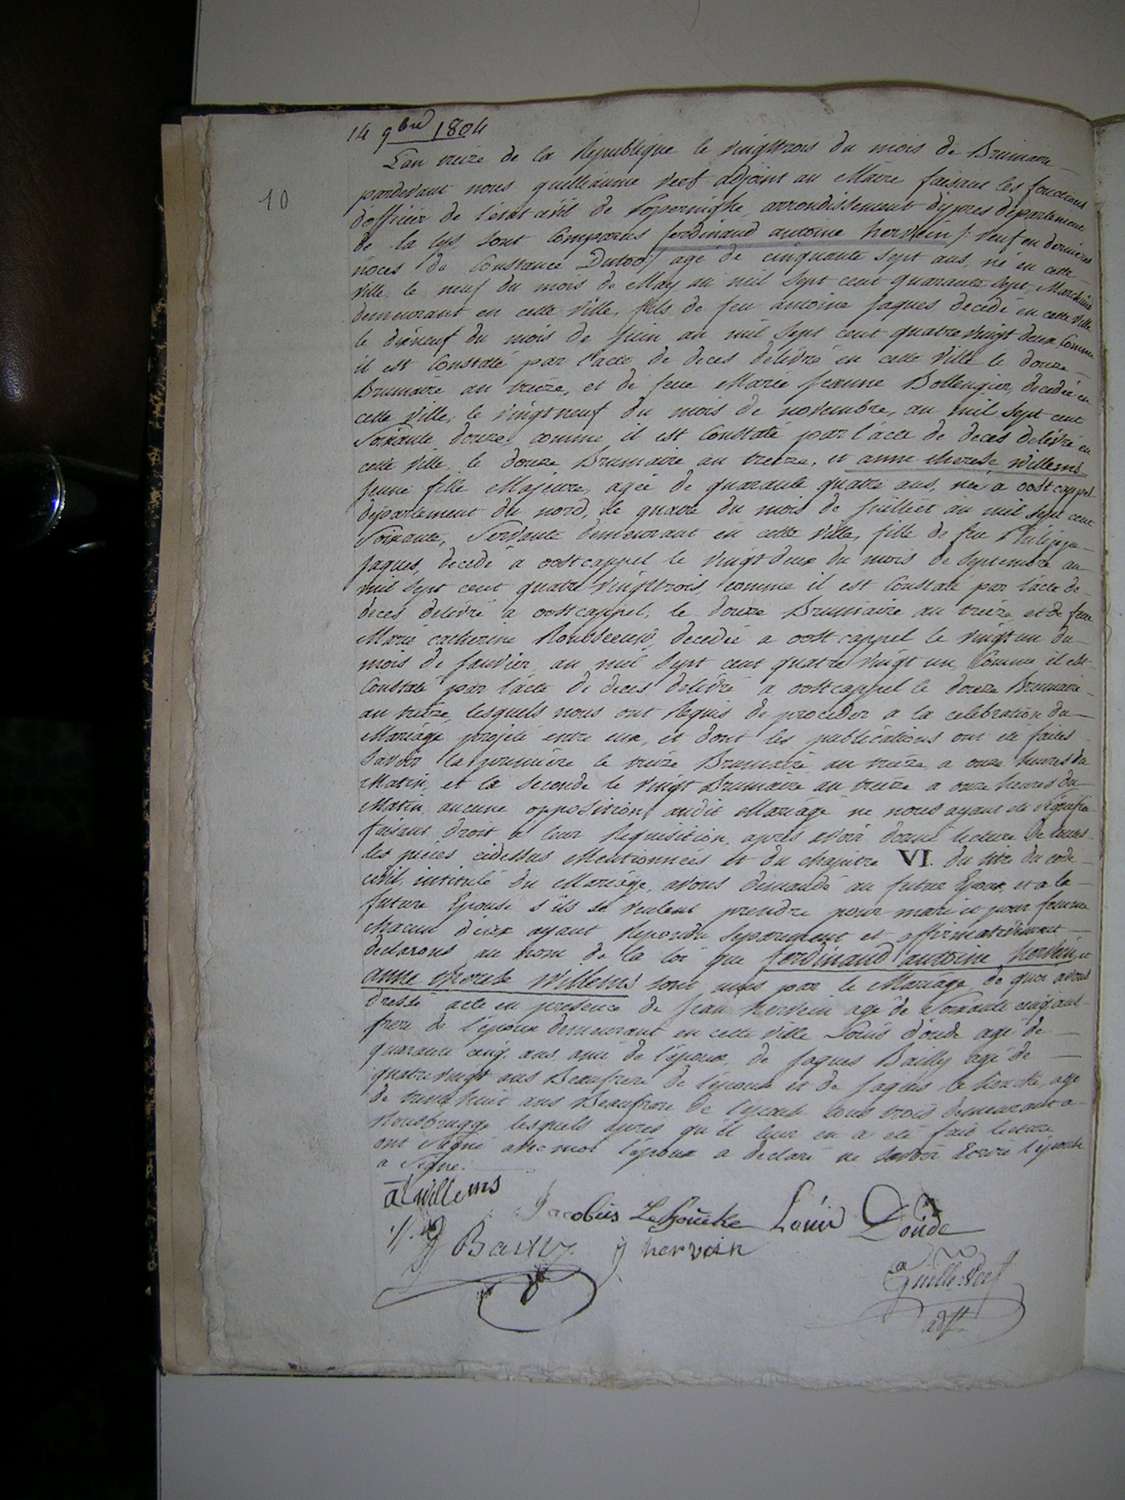 14 9bre 1804
10
L'an treize de la Republique le vingttrois du mois de Brumaire
pardevant nous guilleaume verf adjoint au Maire faisant les fonctions
d'officier de l'état civil de Poperinghe arrondissement d'ypres département
de la Lys sont Comparus ferdinand antoine hervein / veuf en dernieres
noces de Constance Dutoo / agé de cinquante sept ans, né en cette
ville le neuf du mois de May an mil sept cent quarante sept, Marchand
demeurant en cette ville, fils de feu antoine Jaques decedé en cette ville
le dixneuf du mois de Juin an mil sept cent quatre vingt deux Comme
il est Constaté par l'acte de deces delivré en cette ville le douze
Brumaire an treize, et de feue Marie Jeanne Bollengier, decedée en
cette ville, le vingtneuf du mois de novembre, an mil sept cent
Soixante douze, comme il est Constaté par l'acte de deces delivré en
cette ville le douze Brumaire an treize, et anne therese Willems
jeune fille Majeure, agée de quarante quatre ans, née a oost cappel
département du nord, le quatre du mois de Juillet an mil sept cent
Soixante, Servante demeurant en cette ville, fille de feu Philippe
Jaques, decedé a oostcappel le vingt deux du mois de Septembre an
mil sept cent quatre vingttrois, comme il est Constaté par l'acte de
deces delivré a oostcappel, le douze Brumaire an treize et de feue
Marie catherine decedée a oost cappel le vingt un du
mois de Janvier an mil sept cent quatre vingt un Comme il est
Constaté par l'acte de deces delivré a oostcappel le douze Brumaire
an treize, lesquels nous ont Requis de proceder a la celebration du
Mariage projeté entre eux, et dont les publications ont été faites
Savoir la premiere le treize Brumaire an treize a onze heures du
Matin, et la seconde le vingt Brumaire an treize a onze heures du
Matin, aucune opposition audit Mariage ne nous ayant été signifié
faisant droit a leur Requisition, apres avoir donné lecture de toutes
les pieces cidessus Mentionnées et du chapitre VI. du titre du code
civil, intitulé du Mariage, avons demandé au futur Epoux, et a la
future Epouse s'ils se veulent prendre pour mari et pour femme
chacun d'eux ayant Repondu Separement et affirmativement
declarons au nom de la loi que ferdinand antoine hervein et
anne therese Willems sont unis par le Mariage, de quoi avons
dressé acte en presence de Jean hervein agé de Soixante cinq ans
frere de l'époux demeurant en cette ville Louis doude agé de
quarante cinq ans ami de l'époux de Jaques Bailly agé de
quatrevingt ans Beaufrere de l'épouse et de Jaques agé
de trente huit ans Beaufrere de l'épouse tous trois demeurant a
Rousbrugge lesquels apres qu'il leur en a été fait lecture
ont Signé avec moi l'époux a declaré ne Savoir Ecrire l'épouse
a Signé.
at willems
Jacobus Lehoucke Louis Doude
J Bailly j hervein
Guille. Verf
adjt.